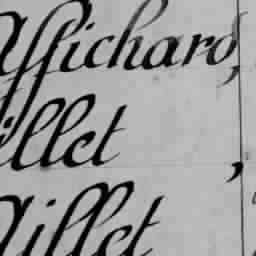 Affichard,
illet,
Aillet